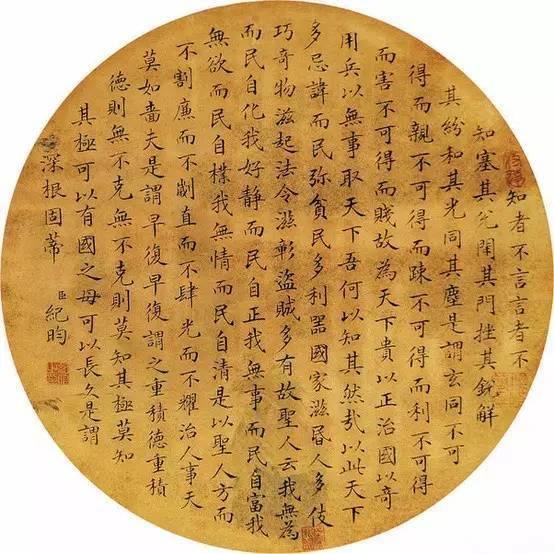 知者不言言者不
知塞其兌閉其門挫其銳解
其紛和其光同其塵是謂玄同不可
得而親不可得而踈不可得而利不可得
而害不可得而賤故為天下貴以正治國以奇
用兵以無事取天下吾何以知其然哉以此天下
多忌諱而民弥貧民多利器國家滋昬人多伎
巧奇物滋起法令滋彰盜賊多有故聖人云我無為
而民自化我好静而民自正我無事而民自富我
無欲而民自樸我無情而民自清是以聖人方而
不割廉而不劌直而不肆光而不耀治人事天
莫如嗇夫是謂早復早復謂之重積德重積
德則無不克無不克則莫知其極莫知
其極可以有國之母可以長久是謂
深根固蒂
臣紀昀